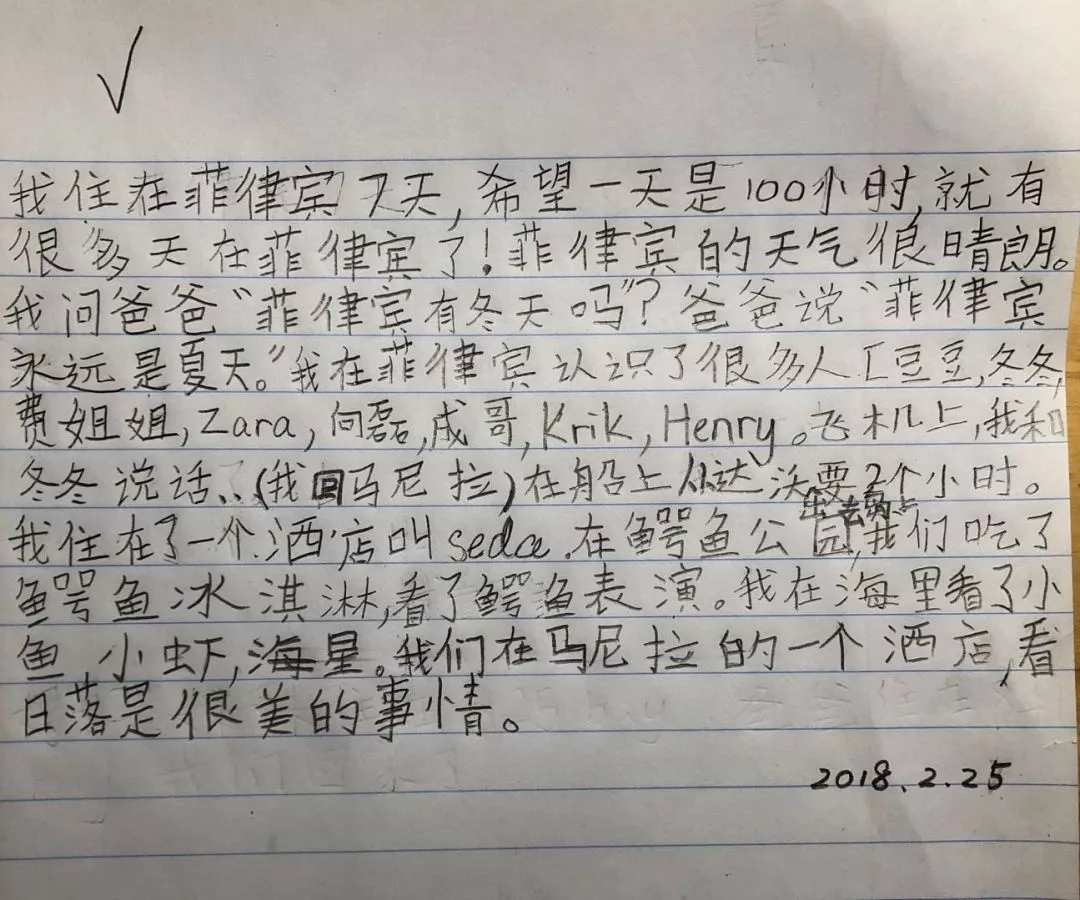 √
我住在菲律宾7天,希望一天是100小时,就有
很多天在菲律宾了!菲律宾的天气很晴朗。
我问爸爸“菲律宾有冬天吗”?爸爸说“菲律宾
永远是夏天。”我在菲律宾认识了很多人[豆豆,冬冬,
费姐姐,Zara,向磊,成哥,Krik,Henry。飞机上,我和
冬冬说话..(我回马尼拉)在船上 要2个小时。
我住在了一个酒店叫seda.在鳄鱼公园,我们吃了
鳄鱼冰淇淋,看了鳄鱼表演。我在海里看了小
鱼,小虾,海星。我们在马尼拉的一个酒店,看
日落是很美的事情。
2018.2.25